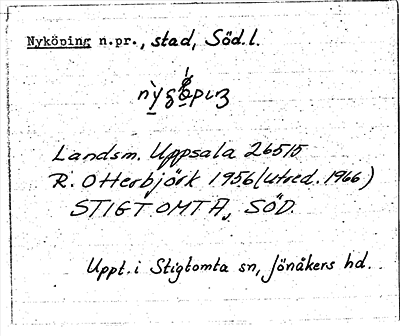 Nyköping n.pr., stad, Söd.l.
Landsm. Uppsala 26515
R. Otterbjörk 1956 (utred. 1966)
STIGTOMTA, SÖD.
Uppt. i Stigtomta sn, Jönåkers hd.